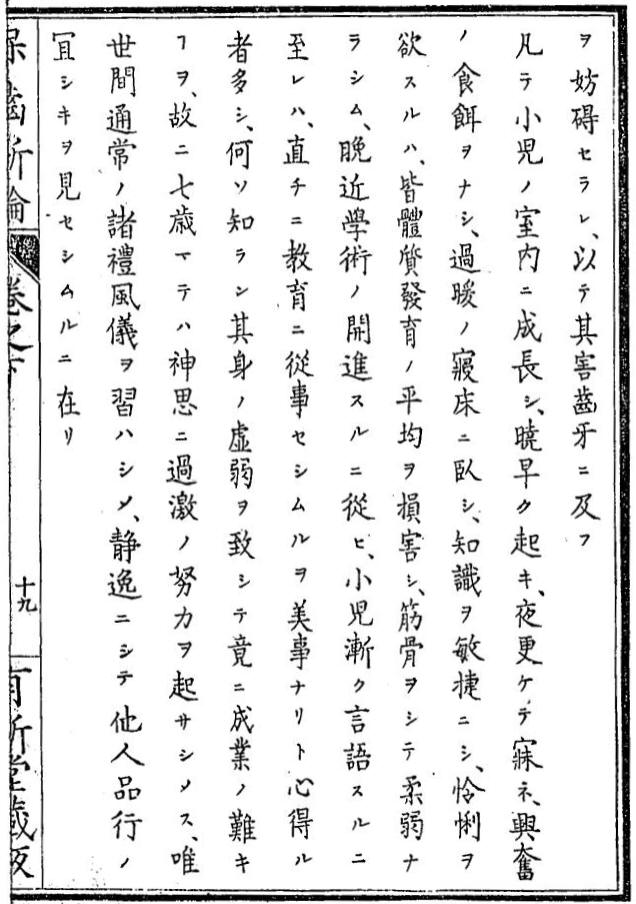 ヲ妨碍セラレ、以テ其害齒牙ニ及フ
凡テ小児ノ室内ニ成長シ、曉早ク起キ、夜更ケテ寐ネ、興奮
ノ食餌ヲナシ、過暖ノ寢床ニ臥シ、知識ヲ敏捷ニシ、怜悧ヲ
欲スルハ、皆體質發育ノ平均ヲ損害シ、筋骨ヲシテ柔弱ナ
ラシム、晩近學術ノ開進スルニ從ヒ、小児漸ク言語スルニ
至レハ、直チニ教育ニ從事セシムルヲ美事ナリト心得ル
者多シ、何ソ知ラン其身ノ虚弱ヲ致シテ竟ニ成業ノ難キ
ヿヲ、故ニ七歳マテハ神思ニ過激ノ努力ヲ起サシメス、唯
世間通常ノ諸禮風儀ヲ習ハシメ、静逸ニシテ他人品行ノ
冝シキヲ見セシムルニ在リ
保齒新論
卷之下
十九
有新堂藏版